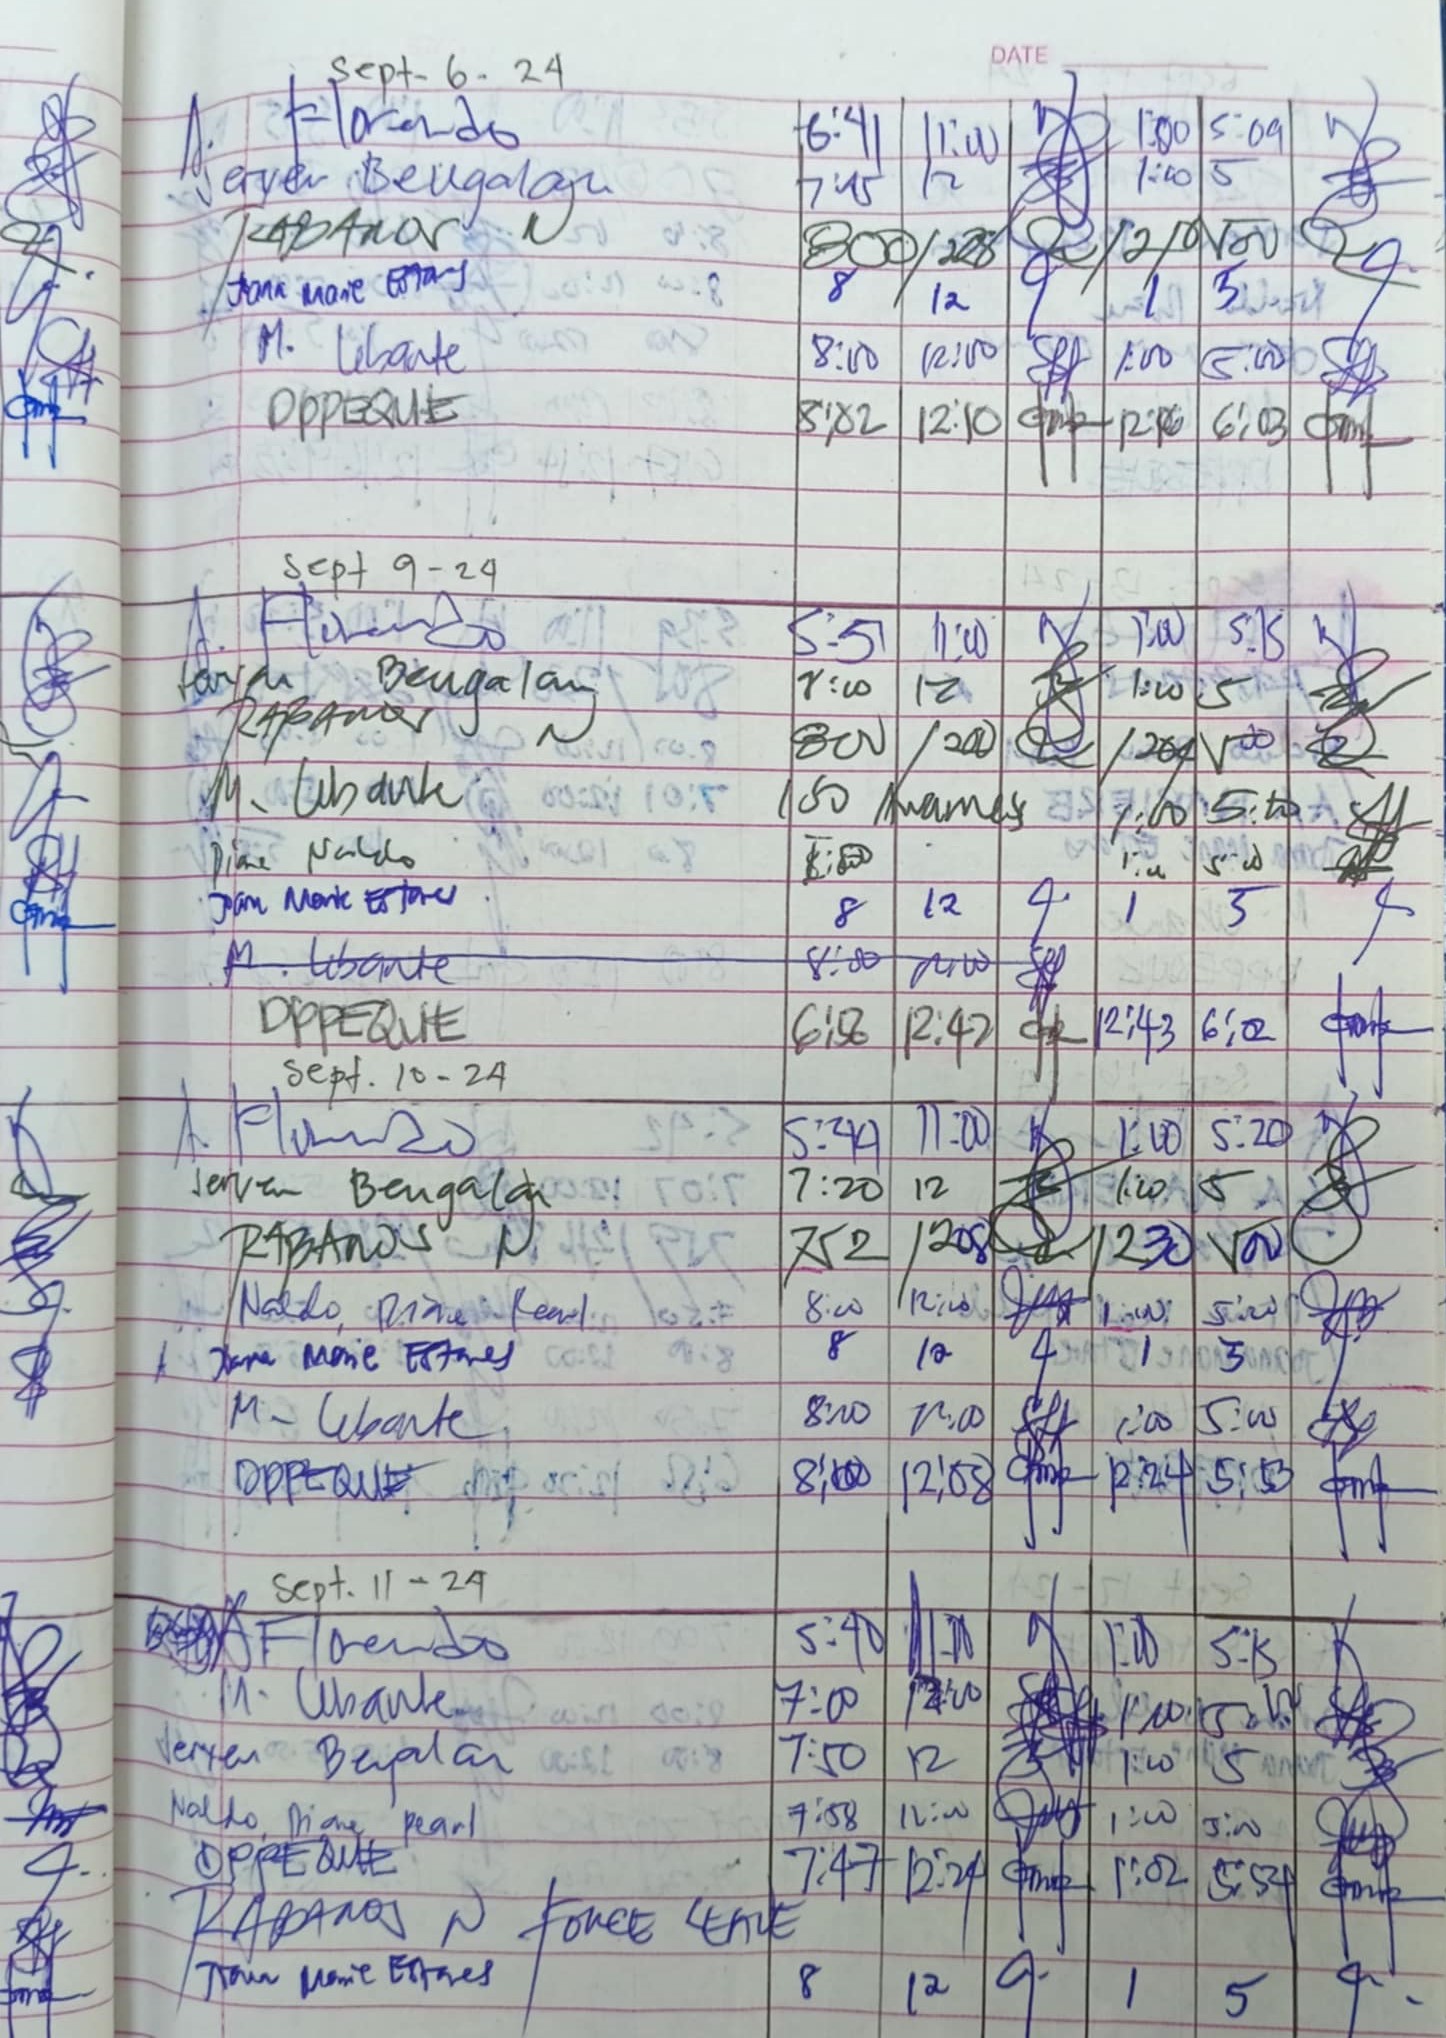 DATE
Sept- 6- 24
A. Florendo 6:41 11:00 1:00 5:09
Jerven Bengalan 7:45 12 1:00 5
RABANOS N 800 1208 1210 500
Joana Marie Estares 8 12 1 5
M. Ubante 8:00 12:00 1:00 5:00
DPPEQUE 8:02 12:10 12:16 6:03
Sept 9-24
A. Florendo 5:51 11:00 1:00 5:15
Jerven Bengalan 7:00 12 1:00 5
RABANOS N 800 1200 1204 500
M. Ubante 1:00 5:00
Diane Naldo 8:00 1:00 5:00
Joana Marie Estares 8 12 1 5
M. Ubante 8:00 12:00
DPPEQUE 6:58 12:42 12:43 6:02
Sept. 10-24
A. Florendo 5:44 11:00 1:00 5:20
Jerven Bengalan 7:20 12 1:00 5
RABANOS N 752 1208 1230 500
Naldo, Diane Pearl 8:00 12:00 1:00 5:00
Joana Marie Estares 8 12 1 5
M. Ubante 8:00 12:00 1:00 5:00
DPPEQUE 8:00 12:08 12:24 5:53
Sept. 11-24
A Florendo 5:40 11:00 1:00 5:15
M. Ubante 7:00 12:00 1:00
Jerven Bengalan 7:50 12 1:00 5
Naldo, Diane Pearl 7:58 12:00 1:00 5:00
DPPEQUE 7:47 12:24 1:02 5:54
RABANOS N FORCE LEAVE
Joana Marie Estares 8 12 1 5